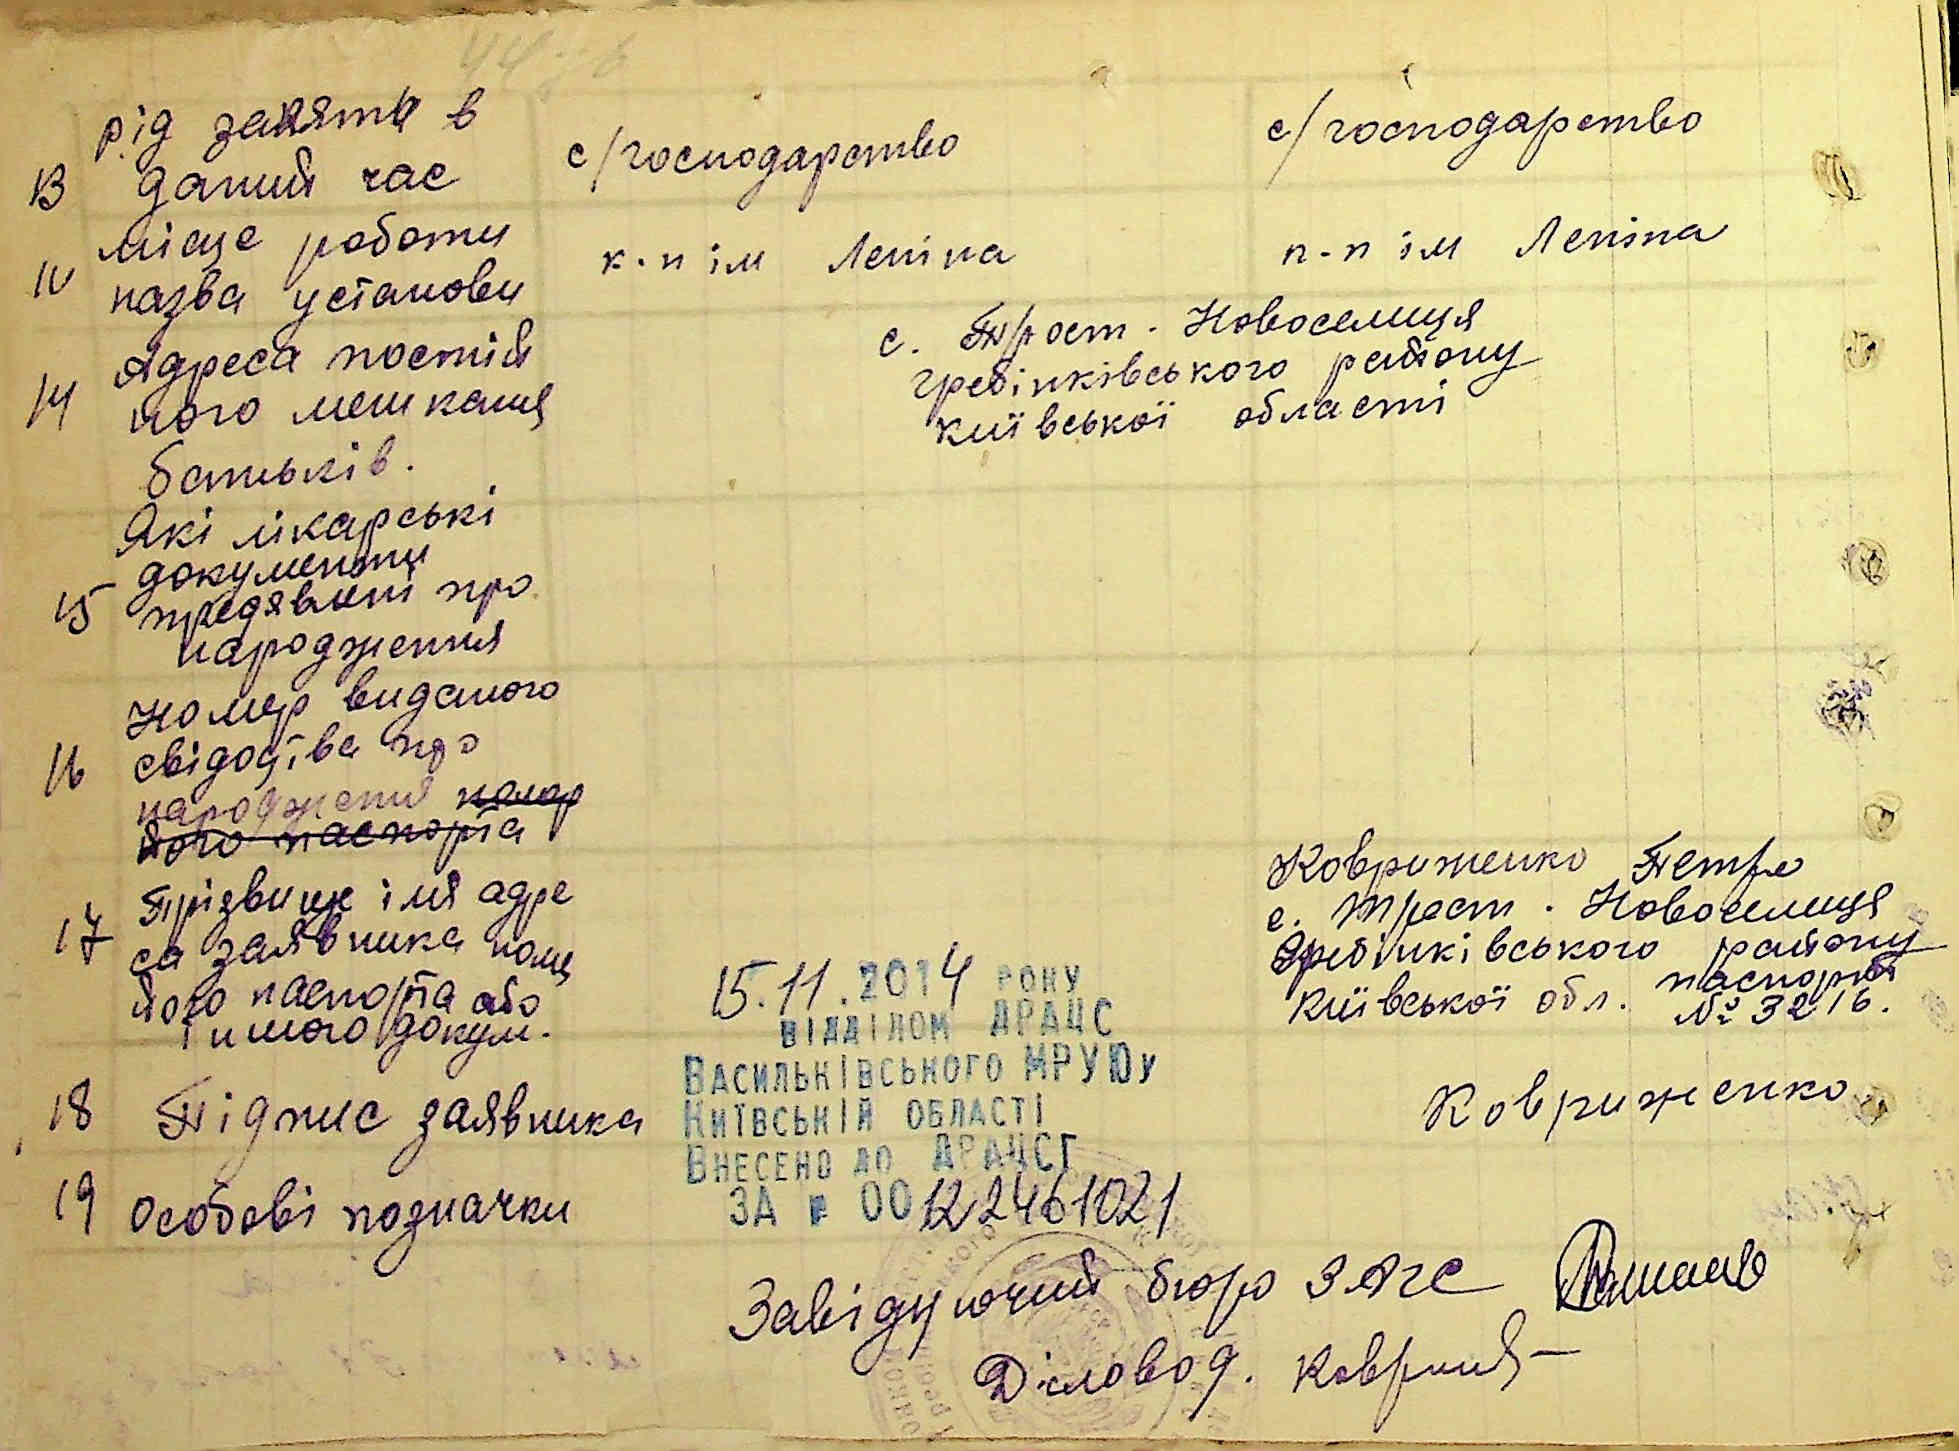 рід занять в
13 даний час
с/господарство
с/господарство
місце роботи
10 назва установи
к-п ім Леніна
п-п ім Леніна
Адреса постій
14 ного мешкання
батьків.
с. Трост. Новоселиця
Гребінківського району
київської області
Які лікарські
документи
15 предявлені про
народження
Номер виданого
16 свідоцтва про
народження номер
його паспорта
17 Прізвище імя адре
са заявника номер
його паспорта або
іншого докум.
Ковриженко Петро
с. Трост. Новоселиця
Гребінківського району
Київської обл. паспорт
№ 3216.
18 Підпис заявника
Ковриженко
19 Особові позначки
15.11.2014 РОКУ
ВІДДІЛОМ ДРАЦС
ВАСИЛЬКІВСЬКОГО МРУЮУ
КИЇВСЬКІЙ ОБЛАСТІ
ВНЕСЕНО ДО ДРАЦСГ
ЗА № 00122461021
Завідуючий бюро ЗАГС
Діловод.